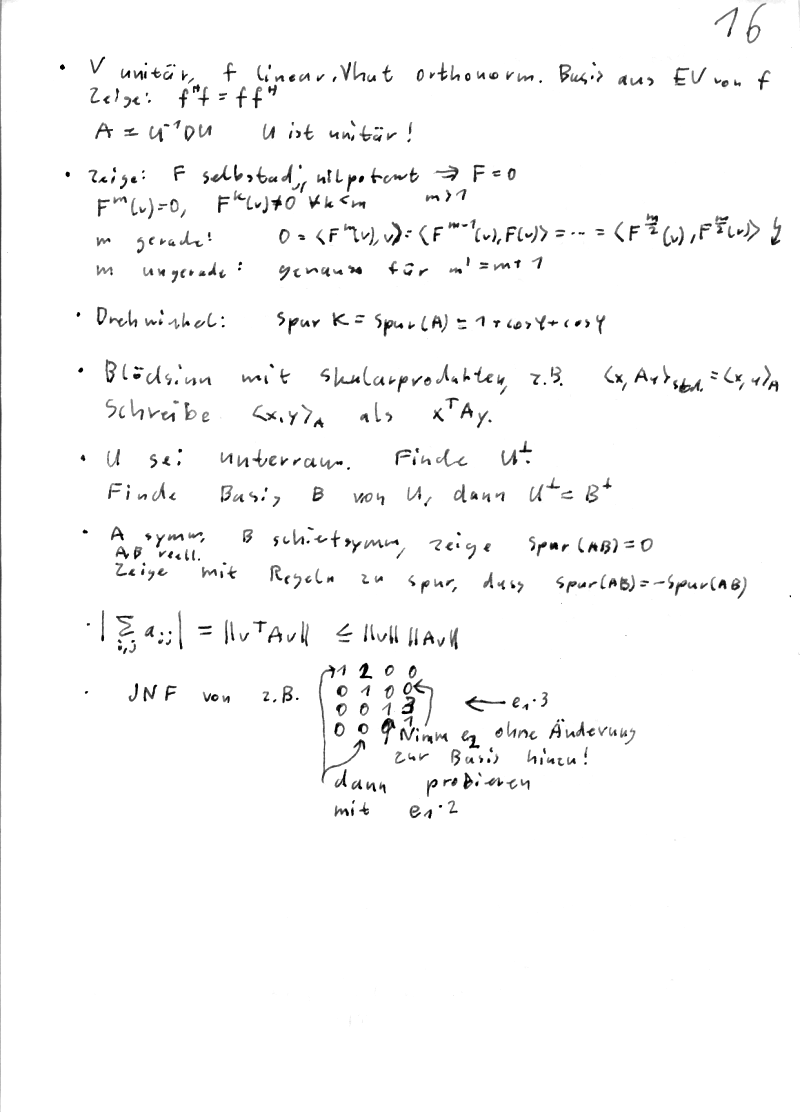 16
• V unitär, f linear, V hat orthonorm. Basis aus EV von f
Zeige: fᴴf = ffᴴ
A = U⁻¹DU U ist unitär!
• Zeige: F selbstadj., nilpotent ⇒ F = 0
Fᵐ(v)=0, Fᵏ(v)≠0 ∀k<m m>1
m gerade: 0 = ⟨Fᵐ(v),v⟩ = ⟨Fᵐ⁻¹(v),F(v)⟩ = ... = ⟨F^{m/2}(v), F^{m/2}(v)⟩ ↯
m ungerade: genauso für m' = m+1
• Drehwinkel: Spur K = Spur(A) = 1+cosφ+cosφ
• Blödsinn mit Skalarprodukten, z.B. ⟨x, Ay⟩std. = ⟨x,y⟩A
Schreibe ⟨x,y⟩A als xᵀAy.
• U sei Unterraum. Finde U⊥.
Finde Basis B von U, dann U⊥ = B⊥
• A symm, B schiefsymm, zeige Spur(AB)=0
A,B reell.
Zeige mit Regeln zu Spur, dass Spur(AB)=-Spur(AB)
• |∑i,j aij| = ||vᵀAv|| ≤ ||v|| ||Av||
• JNF von z.B.
1 2 0 0
0 1 0 0
0 0 1 3 ← e1·3
0 0 0 1
Nimm e2 ohne Änderung
zur Basis hinzu!
dann probieren
mit e1·2